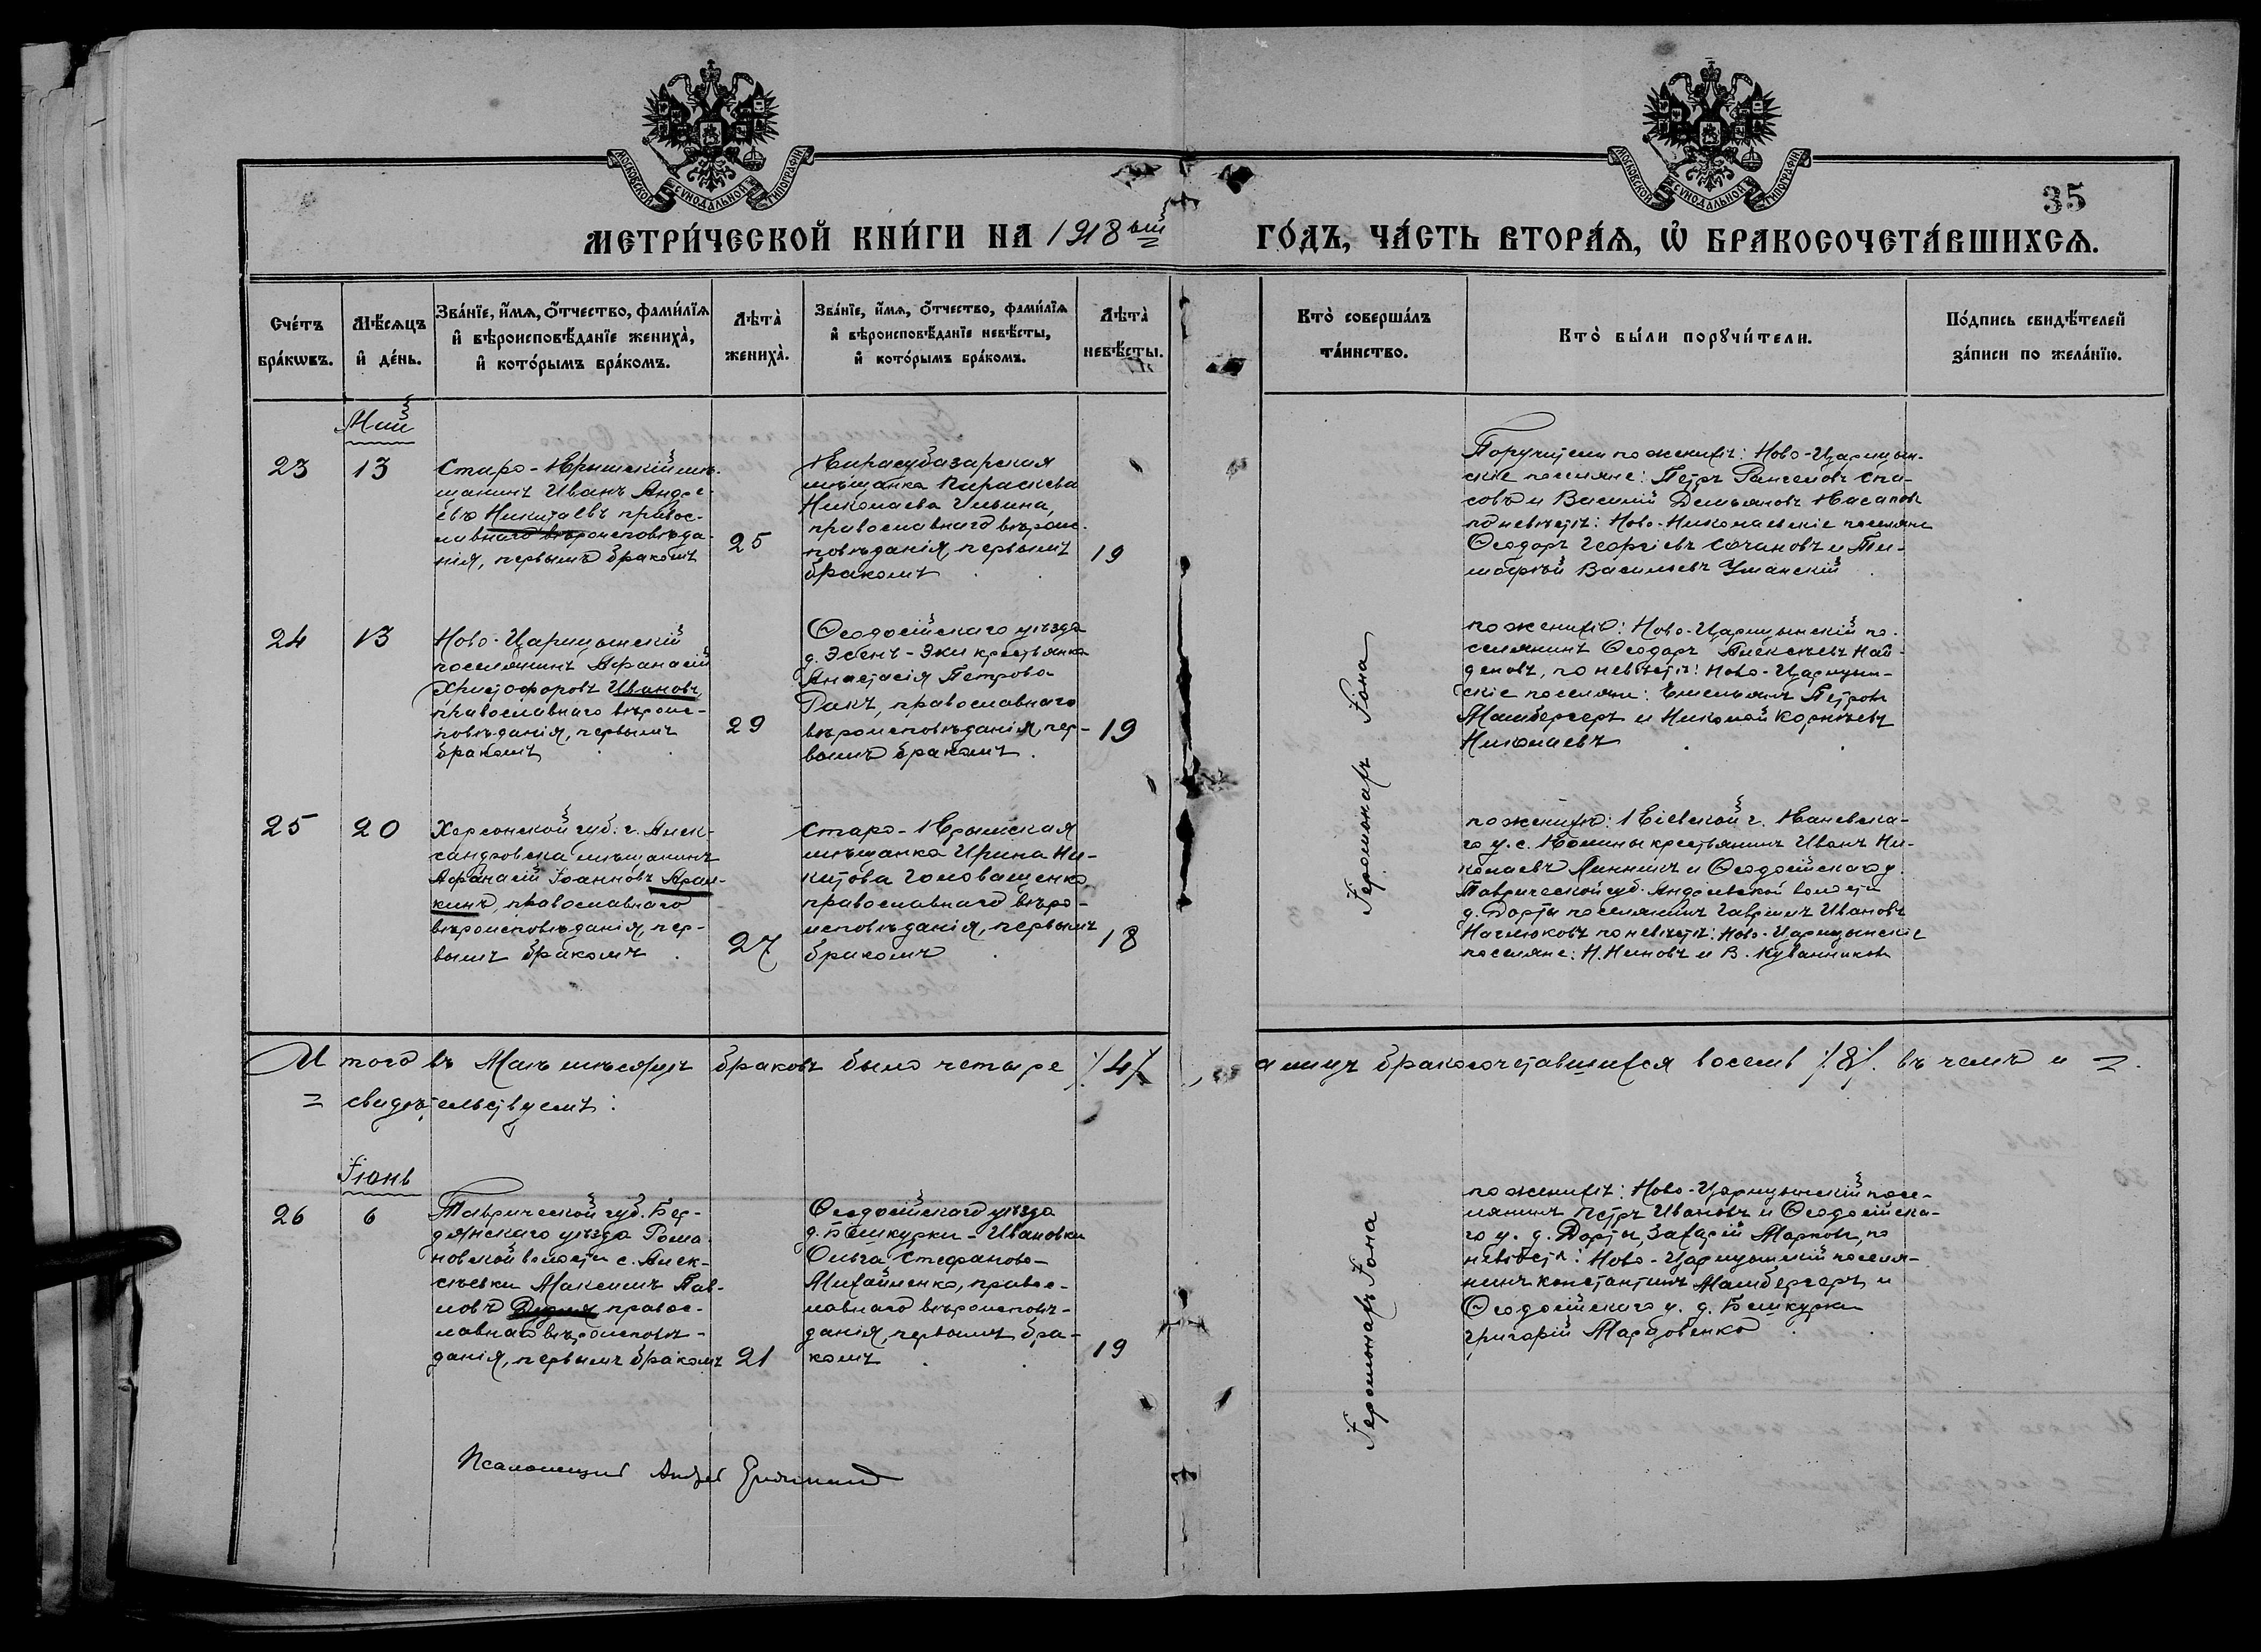 МОСКОВСКОЙ СѴНОДАЛЬНОЙ ТИПОГРАФІИ
МОСКОВСКОЙ СѴНОДАЛЬНОЙ ТИПОГРАФІИ
35
МЕТРИ́ЧЕСКОЙ КНИ́ГИ НА 1918 ый ГО́ДЪ, ЧА́СТЬ ВТОРА́Ѧ, Ѡ҆ БРАКОСОЧЕТА́ВШИХСѦ.
Сче́тъ бра́кѡвъ.
Мѣ́сѧцъ и҆ де́нь.
Зва́нїе, и҆́мѧ, ѻ҆́тчество, фами́лїѧ
и҆ вѣроисповѣ́данїе жениха̀,
и҆ кото́рымъ бра́комъ.
Лѣта̀ жениха̀.
Зва́нїе, и҆́мѧ, ѻ҆́тчество, фами́лїѧ
и҆ вѣроисповѣ́данїе невѣ́сты,
и҆ кото́рымъ бра́комъ.
Лѣта̀ невѣ́сты.
Кто̀ соверша́лъ та́инство.
Кто̀ бы́ли порꙋчи́тели.
По́дпись свидѣ́телей за́писи по жела́нїю.
Май
23
13
Старо-Крымскій мѣ-
щанинъ Иванъ Андре-
евъ Никитаевъ правос-
лавнаго вѣроисповѣда-
нія, первымъ бракомъ
25
Карасубазарская
мѣщанка Параскева
Николаева Ильина,
православнаго вѣроис-
повѣданія, первымъ
бракомъ
19
Поручители по женихѣ: Ново-Царицын-
скіе поселяне: Петръ Спа-
совъ и Василій Демьяновъ
по невѣстѣ: Ново-Николаевскіе поселяне
Ѳеодоръ Георгіевъ Сочановъ и Ти-
моѳей Васильевъ Уманскій
24
13
Ново-Царицынскій
поселянинъ Афанасій
Христофоровъ Ивановъ,
православнаго вѣроис-
повѣданія, первымъ
бракомъ
29
Ѳеодосійскаго уѣзда
д. Эсенъ-Эки крестьянка
Анастасія Петрова
Ракъ, православнаго
вѣроисповѣданія, пер-
вымъ бракомъ.
19
Іеромонахъ Іона
по женихѣ: Ново-Царицынскій по-
селянинъ Ѳеодоръ Алексѣевъ Най-
деновъ, по невѣстѣ: Ново-Царицын-
скіе поселяне: Емельянъ Петровъ
Машбергеръ и Николай Корнѣевъ
Николаевъ
25
20
Херсонской губ. г. Алек-
сандровска мѣщанинъ
Афанасій Іоанновъ Арап-
кинъ, православнаго
вѣроисповѣданія, пер-
вымъ бракомъ.
27
Старо-Крымская
мѣщанка Ирина Ни-
китова Головащенко,
православнаго вѣро-
исповѣданія, первымъ
бракомъ
18
по женихѣ: Кіевской г. Каневска-
го у. с. крестьянинъ Иванъ Ни-
колаевъ Линникъ и Ѳеодосійскаго у.
Таврической губ. Андреевской волости
д. Дорты поселянинъ Гавріилъ Ивановъ
по невѣстѣ: Ново-Царицынскіе
поселяне: Н. Неновъ и В. Куванниковъ
И того въ Маѣ мѣсяцѣ браковъ было четыре /4/ а лицъ бракосочетавшихся восемь /8/. въ чемъ и =
= свидѣтельствуемъ:
Іюнь
26
6
Таврической губ. Бер-
дянскаго уѣзда Рома
новской волости с. Алек-
сѣевки Максимъ Пав-
ловъ Дудля правос-
лавнаго вѣроисповѣ-
данія, первымъ бракомъ
21
Ѳеодосійскаго уѣзда
д. Бешкурки-Ивановки
Ольга Стефанова
Михайленко, правос-
лавнаго вѣроисповѣ-
данія, первымъ бра-
комъ
19
Іеромонахъ Іона
по женихѣ: Ново-Царицынскій посе-
лянинъ Петръ Ивановъ и Ѳеодосійска-
го у. д. Дорты, Захарій Марковъ, по
невѣстѣ: Ново-Царицынскій поселя-
нинъ Константинъ Машбергеръ и
Ѳеодосійскаго у. д. Бешкурки
Григорій Марцовенко
Псаломщикъ Андрей